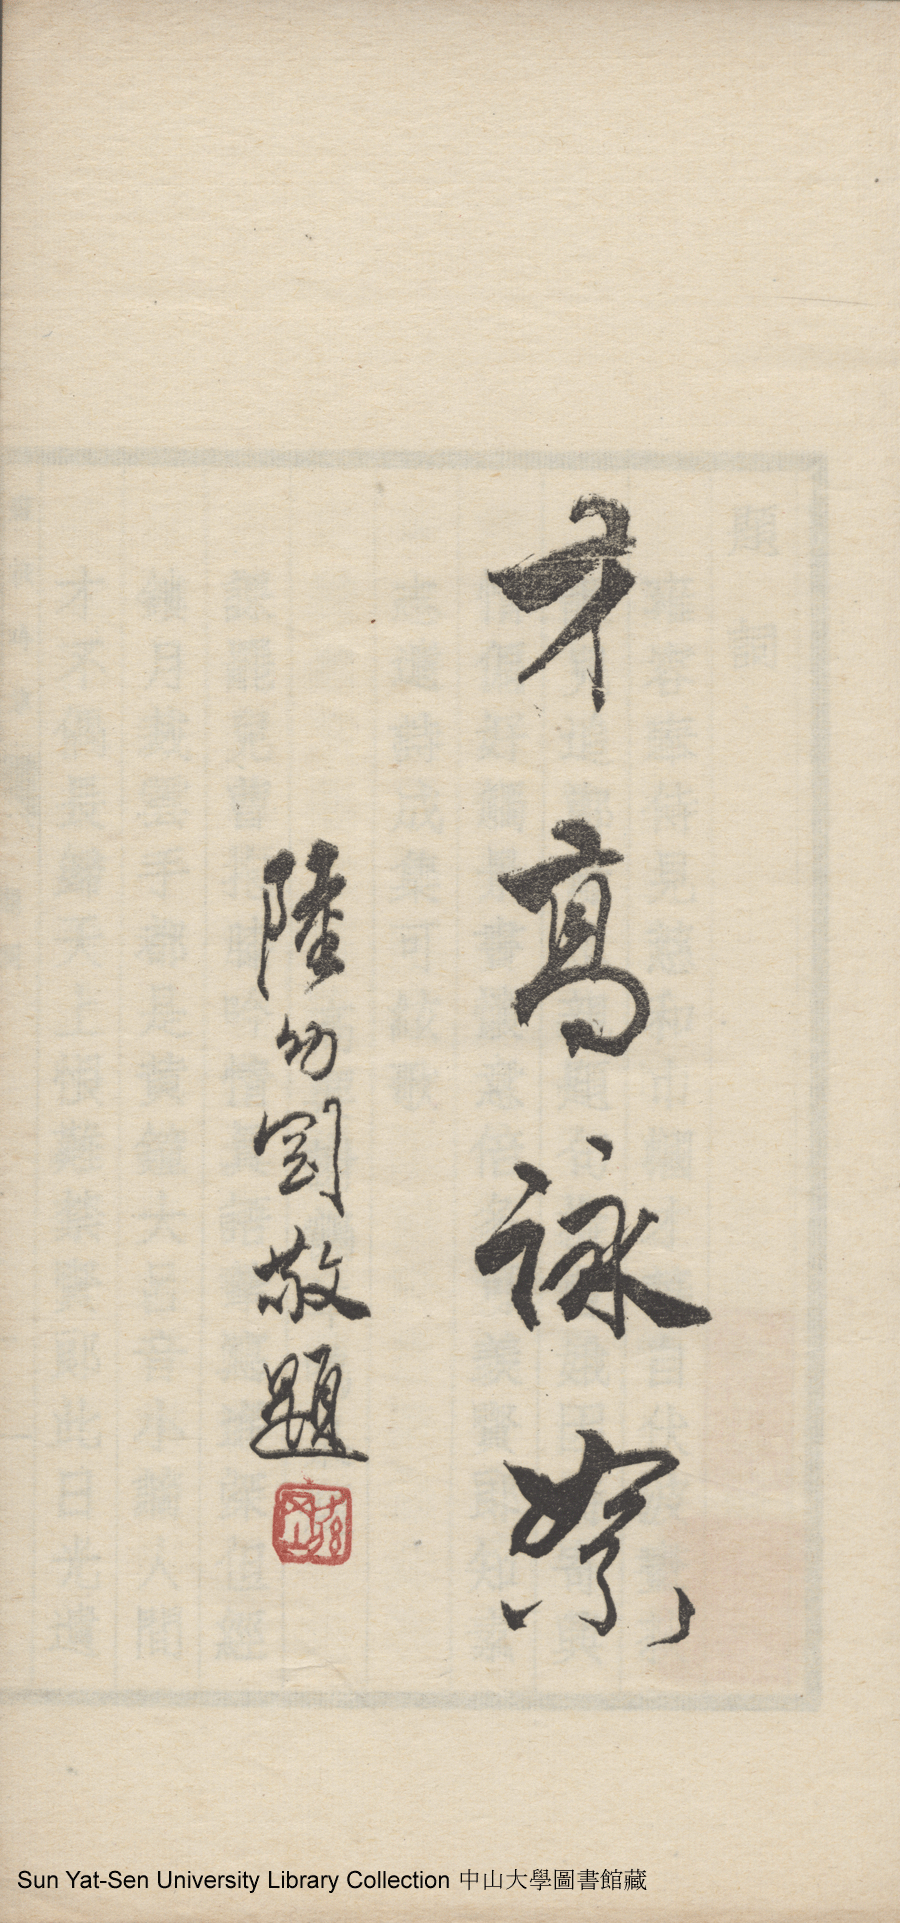 才高詠絮
陸幼剛敬題
Sun Yat-Sen University Library Collection 中山大學圖書館藏